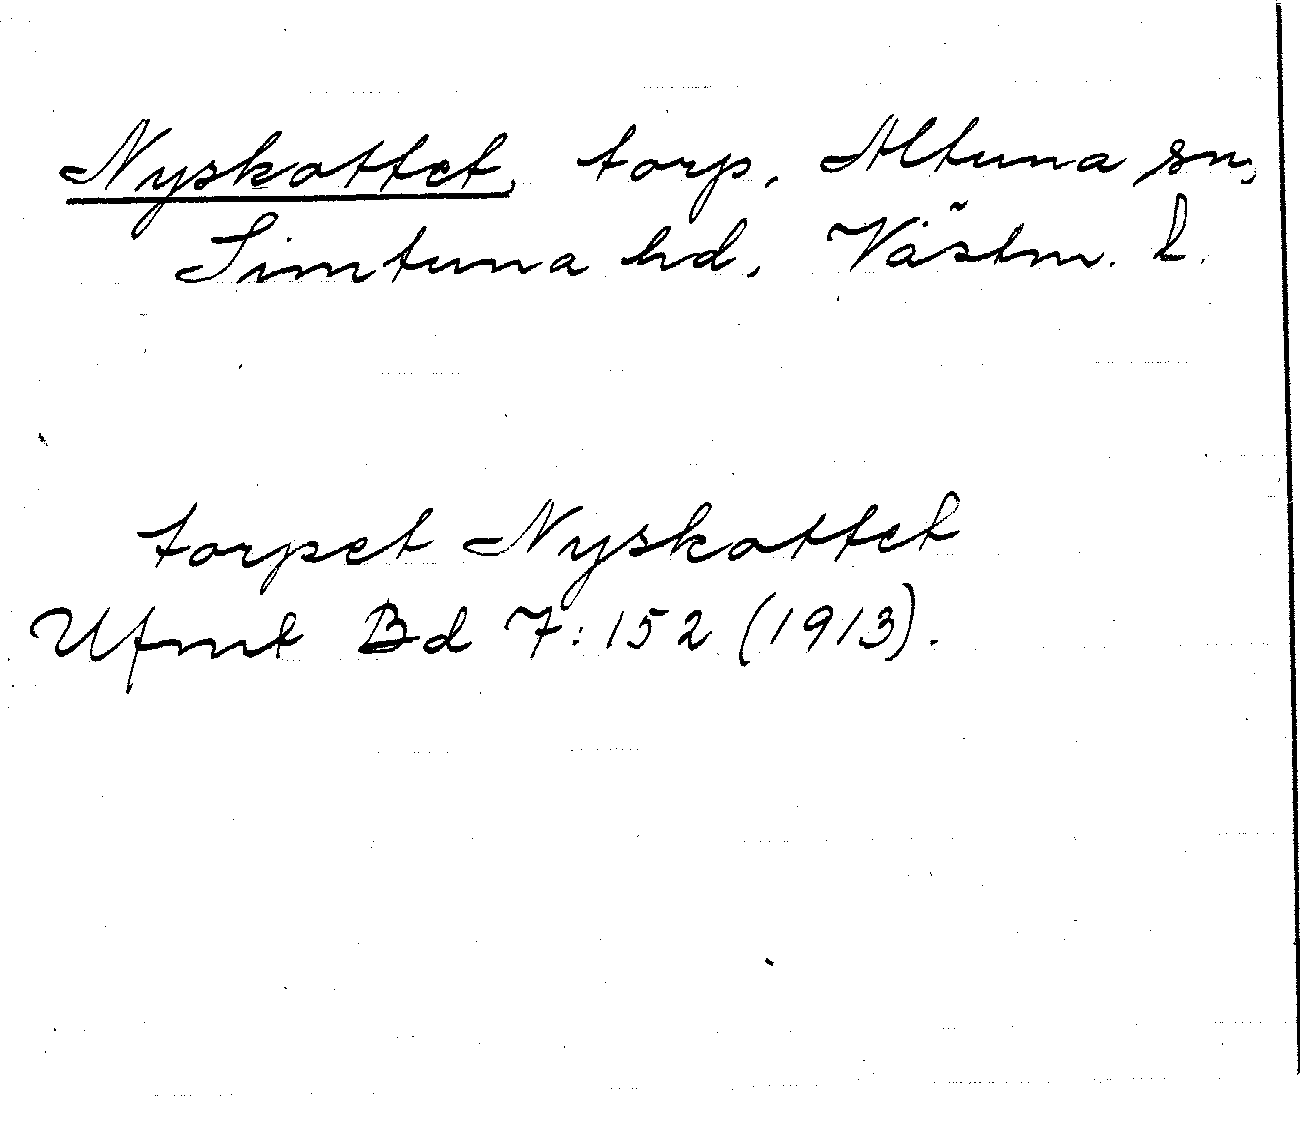 Nyskottet, torp, Altuna sn,
Simtuna hd, Västm. l.
torpet Nyskottet
Ufmt Bd 7:152 (1913).